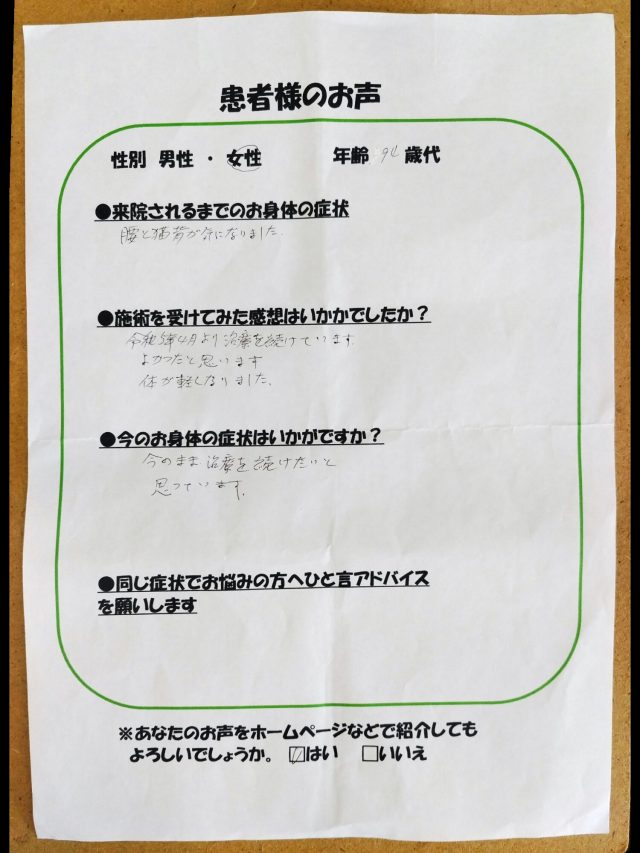 患者様のお声
性別 男性 ・ 女性 年齢 94 歳代
●来院されるまでのお身体の症状
腰と猫背が気になりました.
●施術を受けてみた感想はいかかでしたか？
令和5年4月より治療を続けています.
よかったと思います
体が軽くなりました.
●今のお身体の症状はいかがですか？
今のまま治療を続けたいと
思っています.
●同じ症状でお悩みの方へひと言アドバイス
を願いします
※あなたのお声をホームページなどで紹介しても
よろしいでしょうか。 ☑はい □いいえ